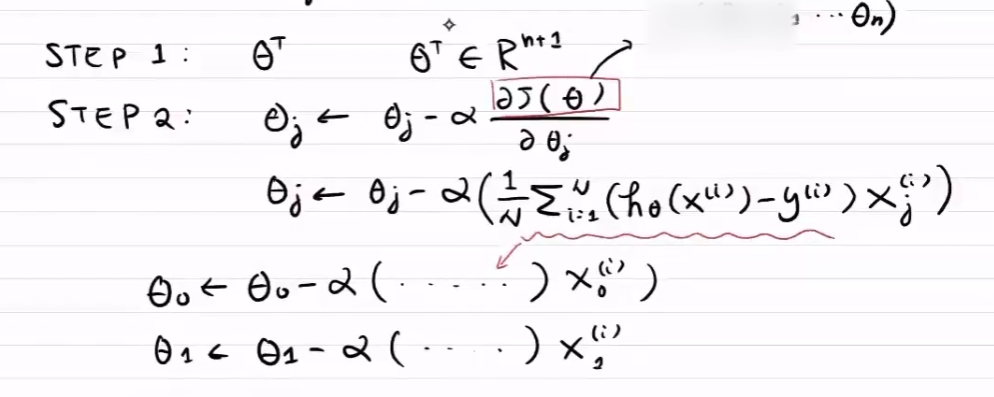 ··· θn)
STEP 1: θᵀ θᵀ ∈ Rⁿ⁺¹
STEP 2: θj ← θj - α ∂J(θ)/∂θj
θj ← θj - α(1/N Σᵢ₌₁ᴺ (hθ(x⁽ⁱ⁾) - y⁽ⁱ⁾) xj⁽ⁱ⁾)
θ₀ ← θ₀ - α (······) x₀⁽ⁱ⁾)
θ₁ ← θ₁ - α (·····) x₁⁽ⁱ⁾